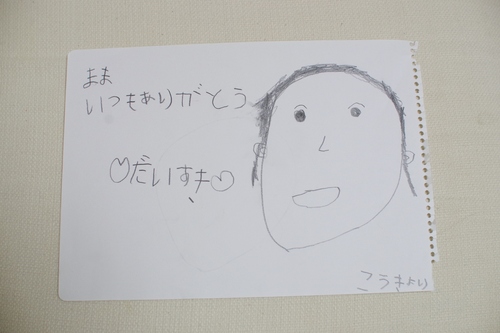 まま
いつもありがとう
♡だいすき♡
こうきより